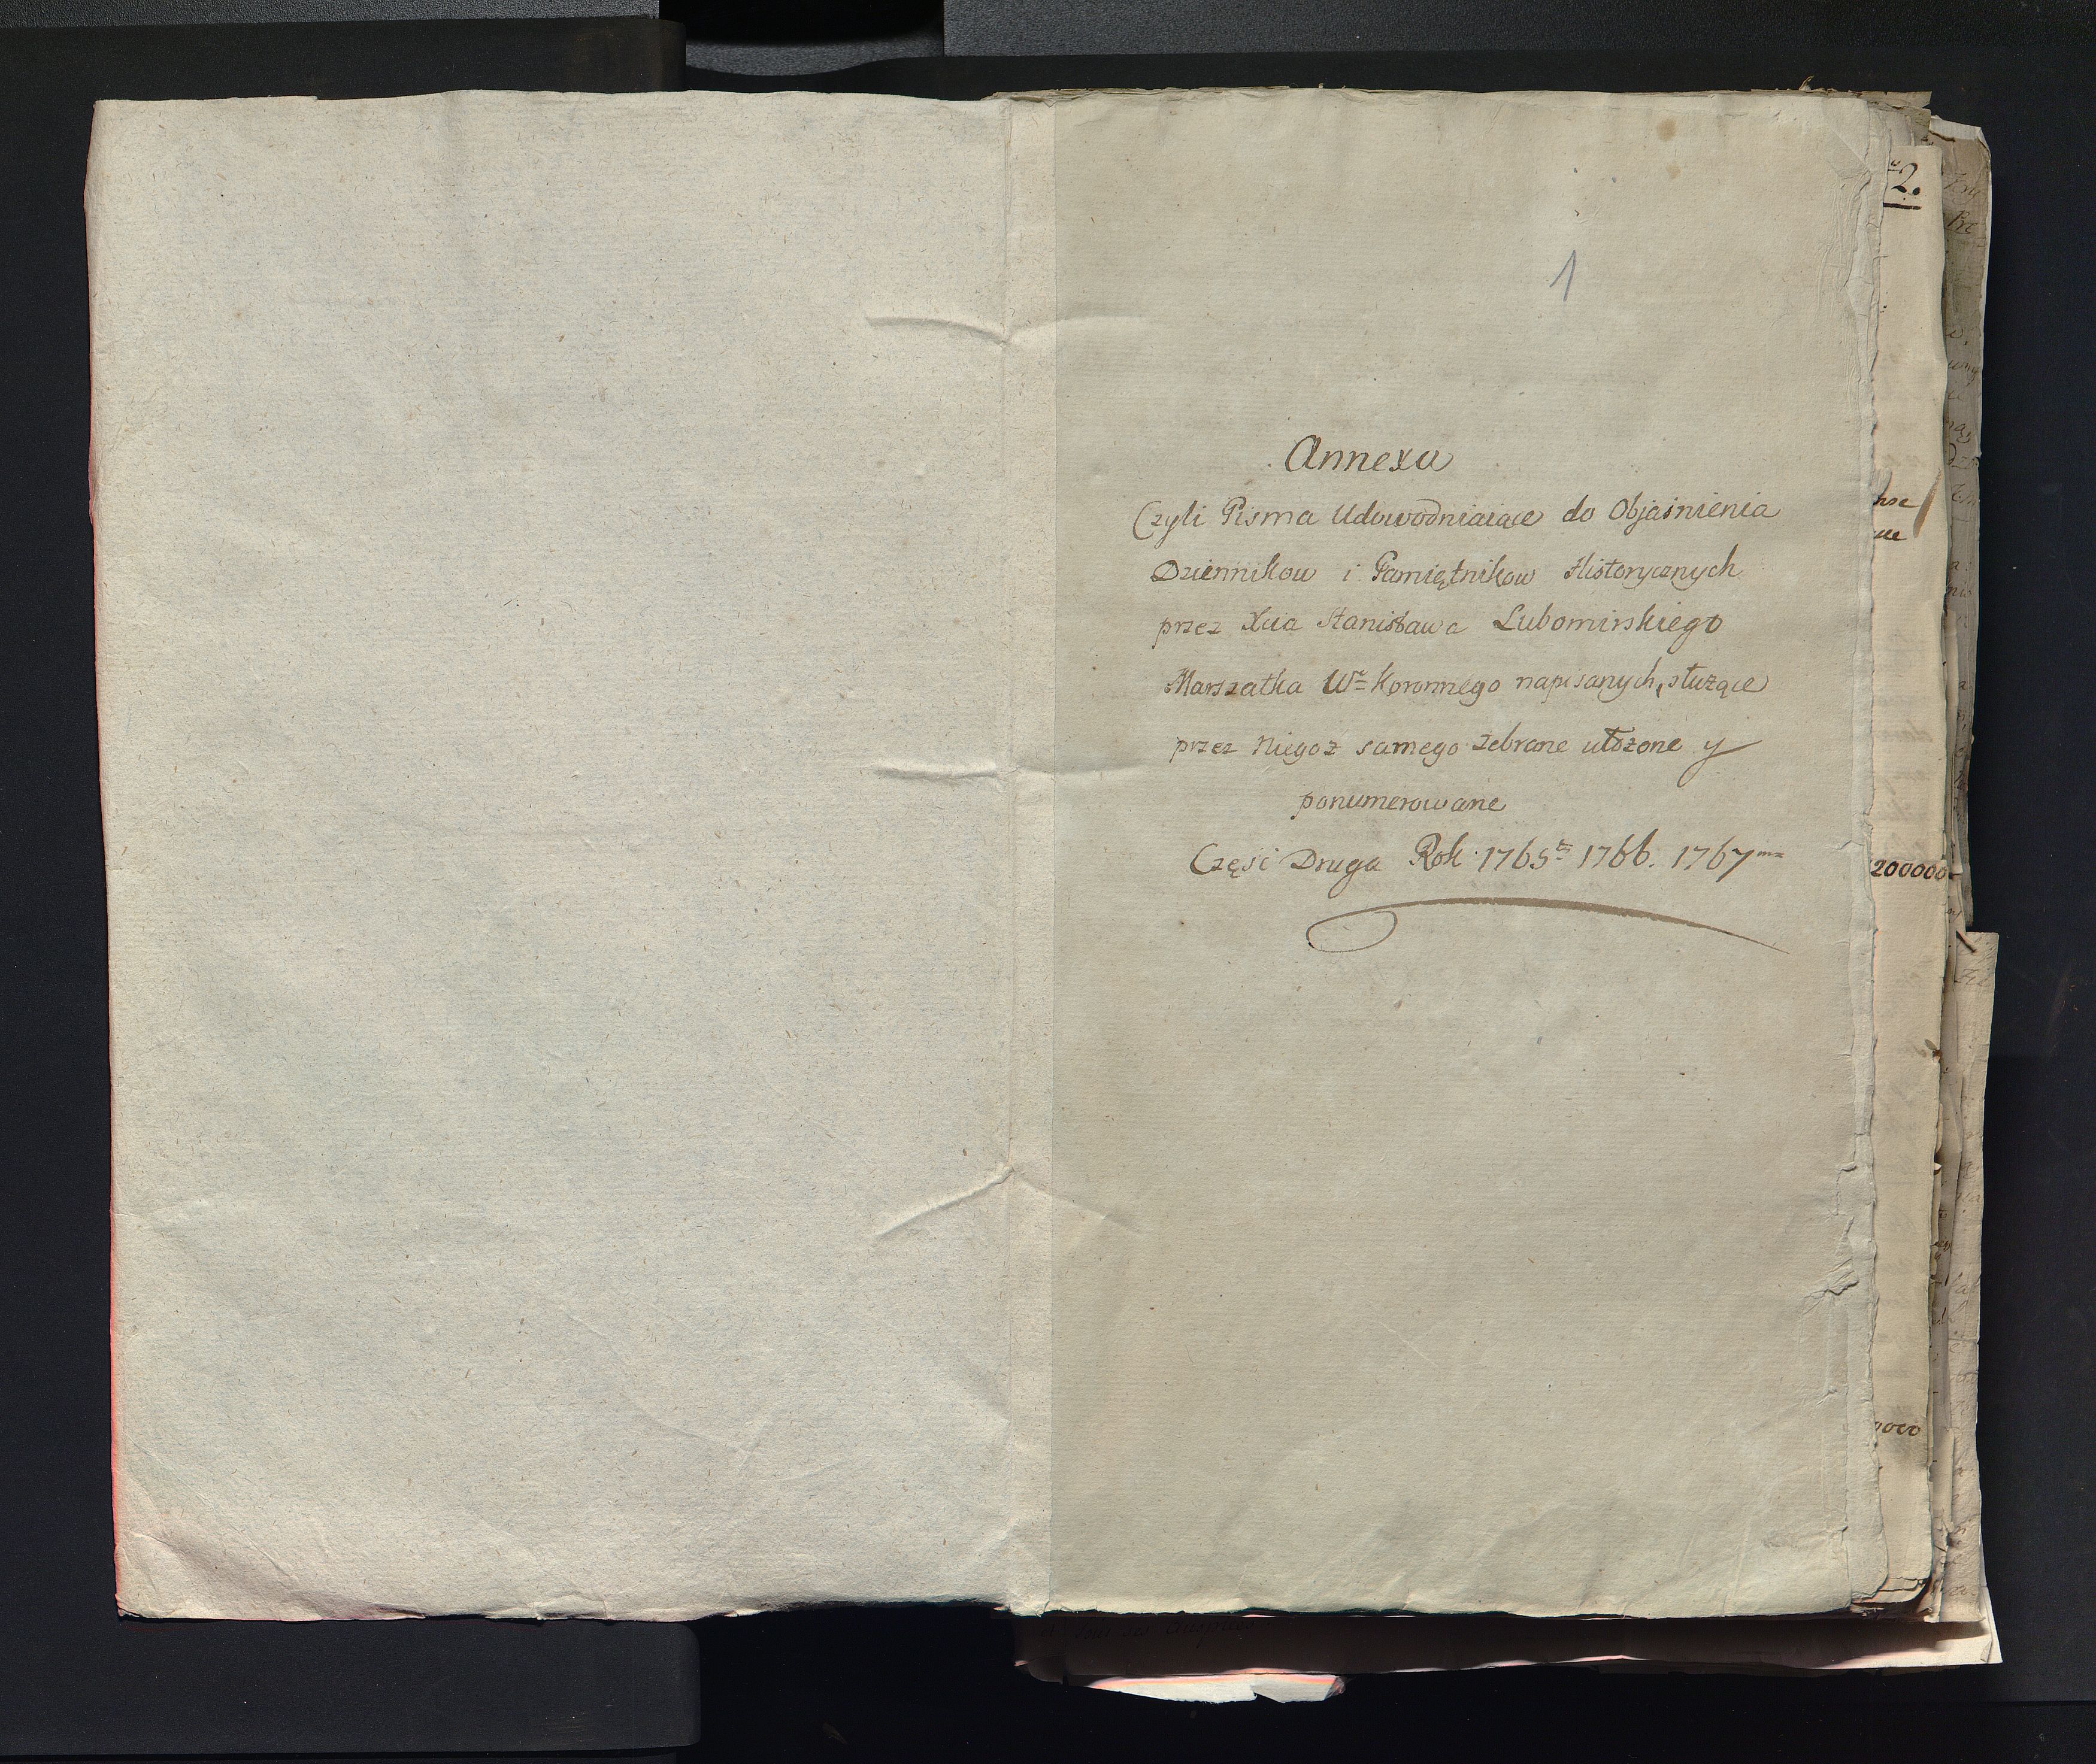 1
Annexa
Czyli Pisma Udowodniaiące do Objaśnienia
Dziennikow i Pamiętnikow Historycznych
przez Xcia Stanisława Lubomirskiego
Marszałka Wo Koronnego napisanych, służące
przez niegoż samego zebrane ułożone y
ponumerowane
Część Druga Rok 1765ty 1766. 1767my
2.
200000